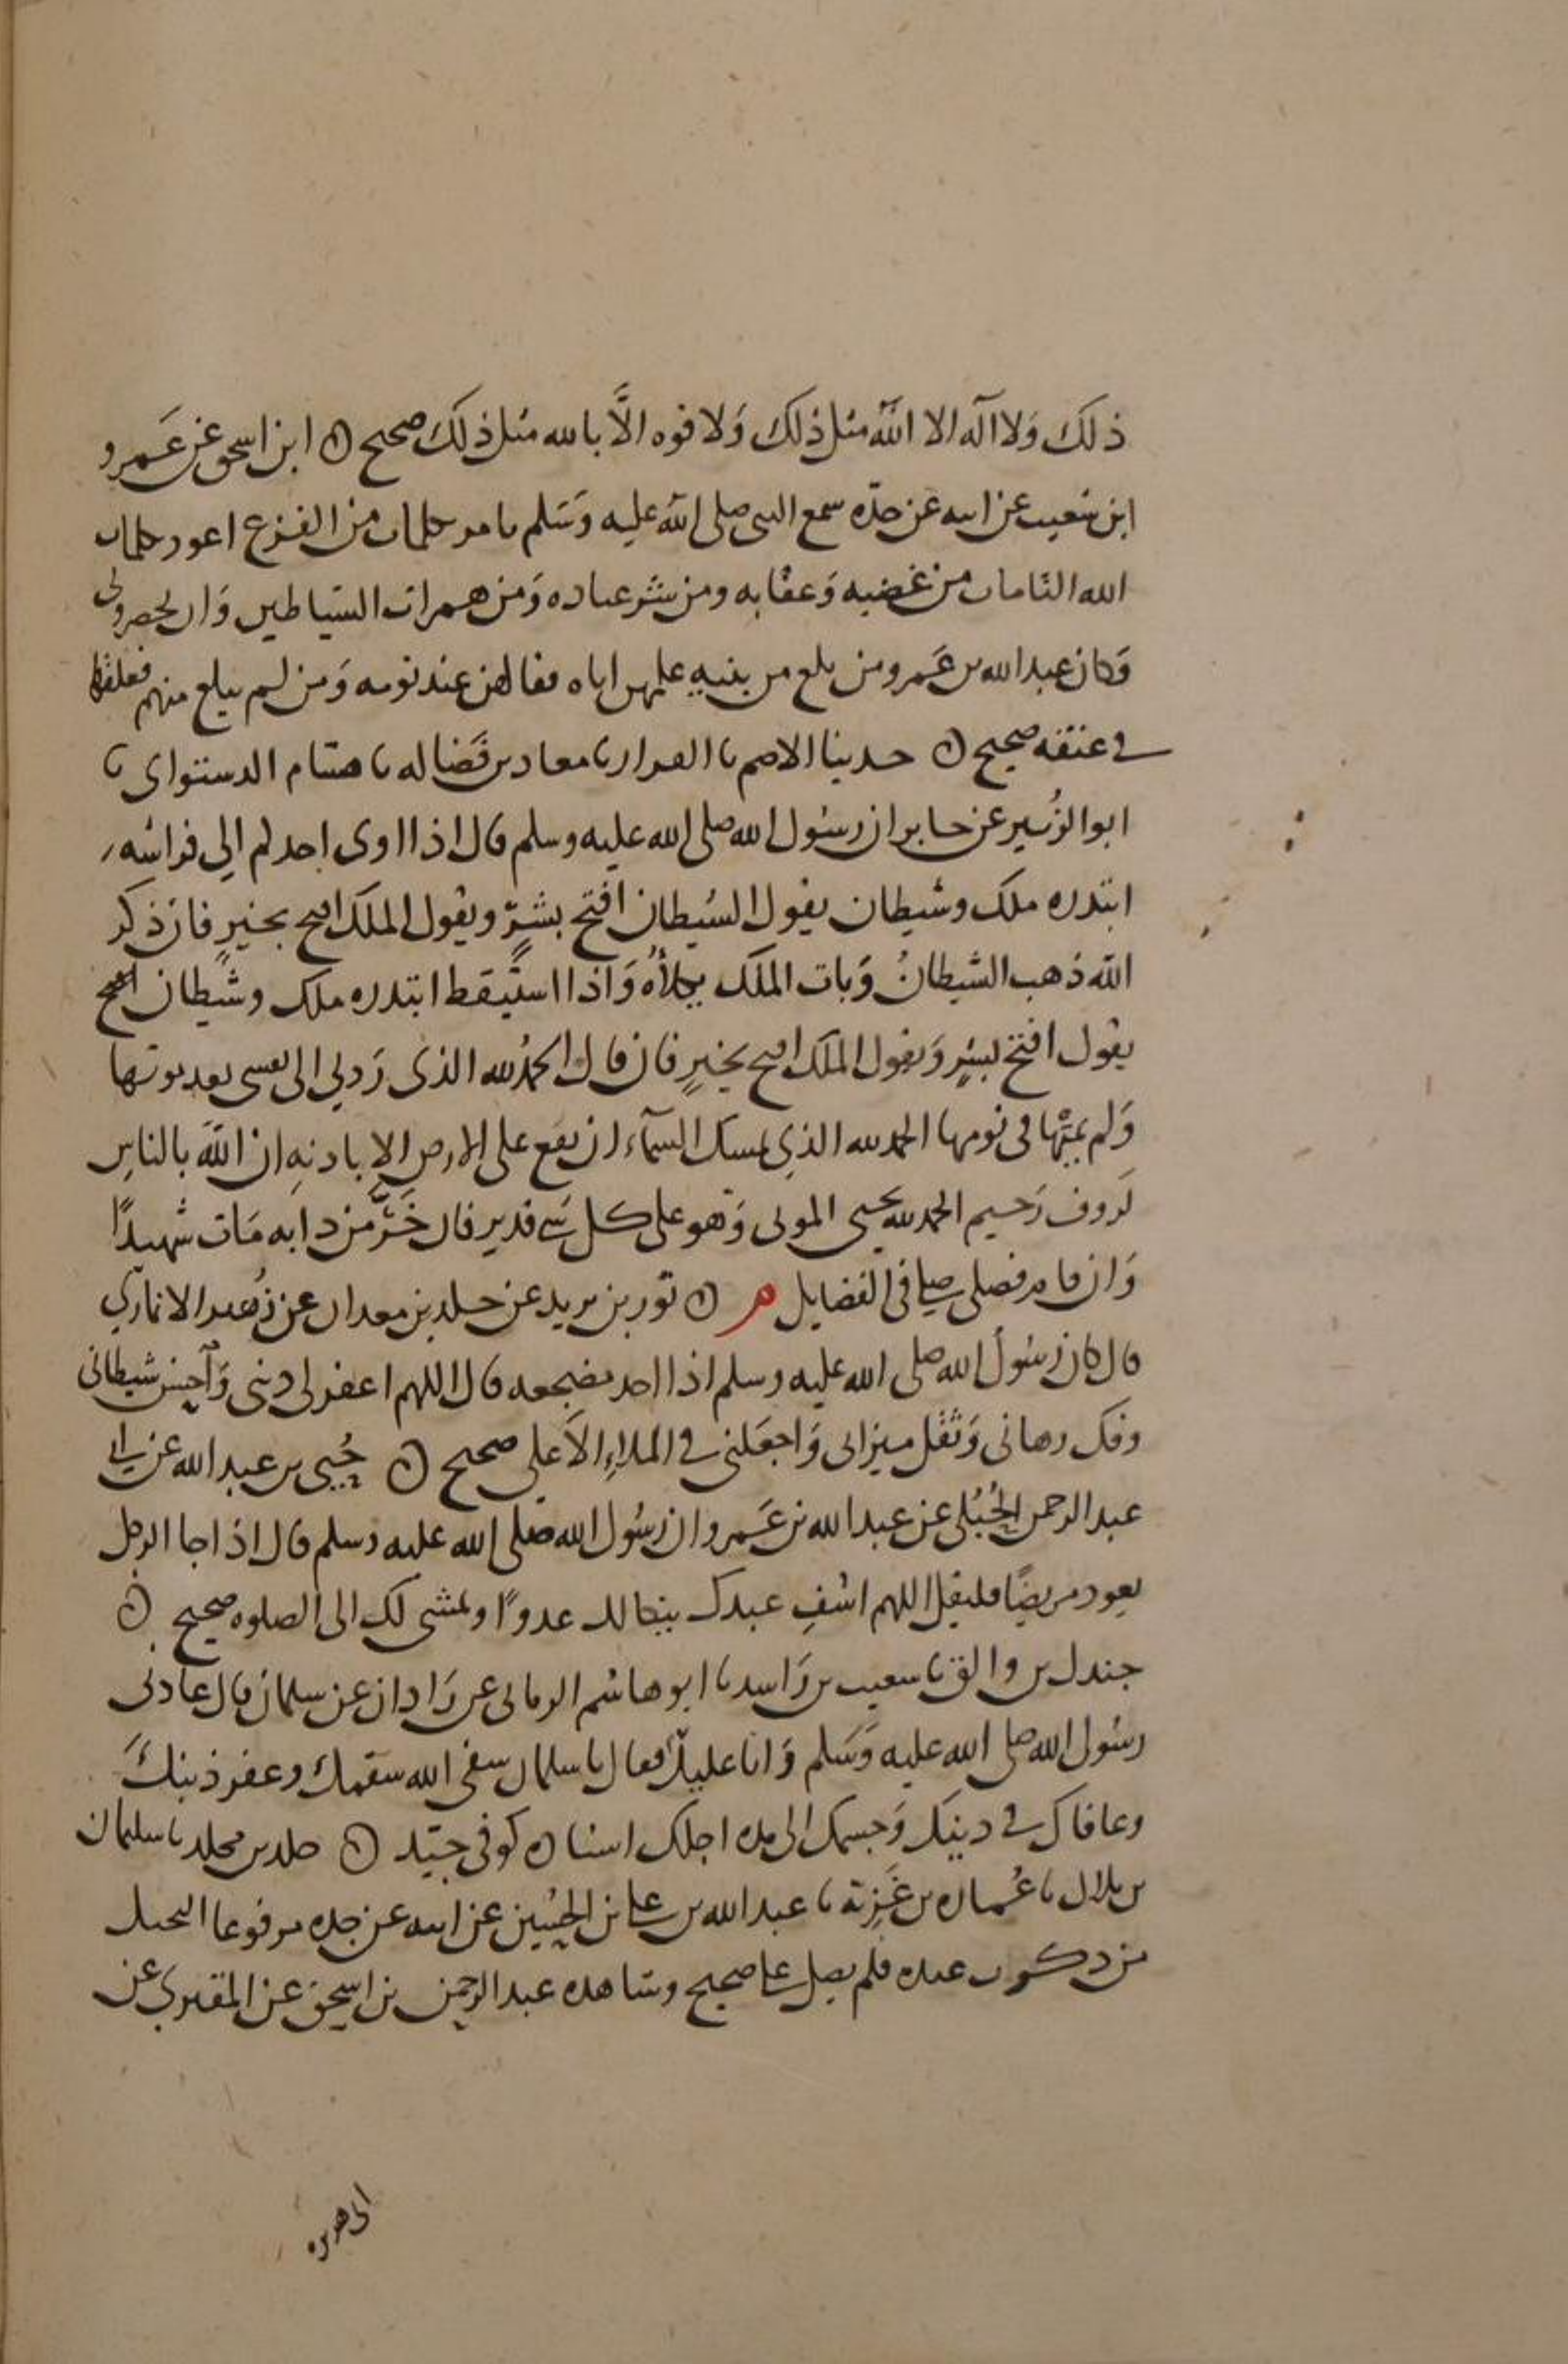 ذلك ولا اله الا الله مثل ذلك ولا قوه الا بالله مثل ذلك صحيح ابن اسحق عن عمرو
ابن شعيب عن ابيه عن جده سمع النبي صلى الله عليه وسلم يامر بكلمات من الفزع اعوذ بكلمات
الله التامات من غضبه وعقابه ومن شر عباده ومن همزات الشياطين وان يحضرون
وكان عبد الله بن عمرو من بلغ من بنيه علمهن اياه فقالهن عند نومه ومن لم يبلغ منهم فعلقها
في عنقه صحيح حدثنا الاصم نا القزاز نا معاذ بن فضاله نا هشام الدستواى نا
ابو الزبير عن جابر ان رسول الله صلى الله عليه وسلم قال اذا اوى احدكم الى فراشه
ابتدره ملك وشيطان يقول الشيطان افتح بشر ويقول الملك افتح بخير فان ذكر
الله ذهب الشيطان وبات الملك يكلأه واذا استيقظ ابتدره ملك وشيطان
يقول افتح بشر ويقول الملك افتح بخير فان قال الحمد لله الذى رد الى نفسى بعد موتها
ولم يمتها فى نومها الحمد لله الذي يمسك السماء ان تقع على الارض الا باذنه ان الله بالناس
لروف رحيم الحمد لله يحيى الموتى وهو على كل شى قدير فان خر من دابه مات شهيدا
وان قام فصلى صلى فى الفضايل م ثور بن يزيد عن خلد بن معدان عن زهير الانماري
قال كان رسول الله صلى الله عليه وسلم اذا اخذ مضجعه قال اللهم اغفر لى ذنبى واخس شيطانى
وفك رهانى وثقل ميزانى واجعلنى في الملاء الاعلى صحيح حُيى بن عبد الله عن ابي
عبد الرحمن الحُبُلى عن عبد الله بن عمرو ان رسول الله صلى الله عليه وسلم قال اذا جا الرجل
يعود مريضًا فليقل اللهم اشفِ عبدك ينكا لك عدوًا ويمشى لك الى الصلوه صحيح
جندل بن والق نا شعيب بن راشد نا ابو هاشم الرمانى عن زاذان عن سلمان قال عادنى
رسول الله صلى الله عليه وسلم وانا عليل فقال يا سلمان شفى الله سقمك وغفر ذنبك
وعافاك في دينك وجسمك الى مده اجلك اسناده كوفى جيّد خلد بن مخلد نا سليمان
بن بلال نا عُماره بن غَزِيّة نا عبد الله بن علي بن الحُسين عن ابيه عن جده مرفوعا البخيل
من ذكرت عنده فلم يصل علي صحيح وشاهده عبد الرحمن بن اسحق عن المقبري عن
ابى هريره